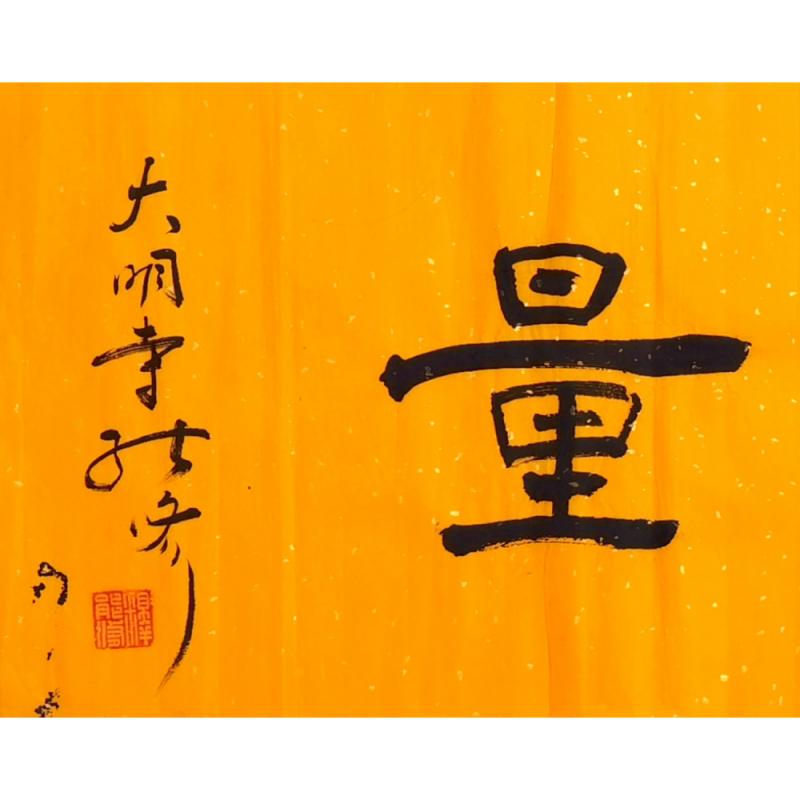 量
大明寺能修